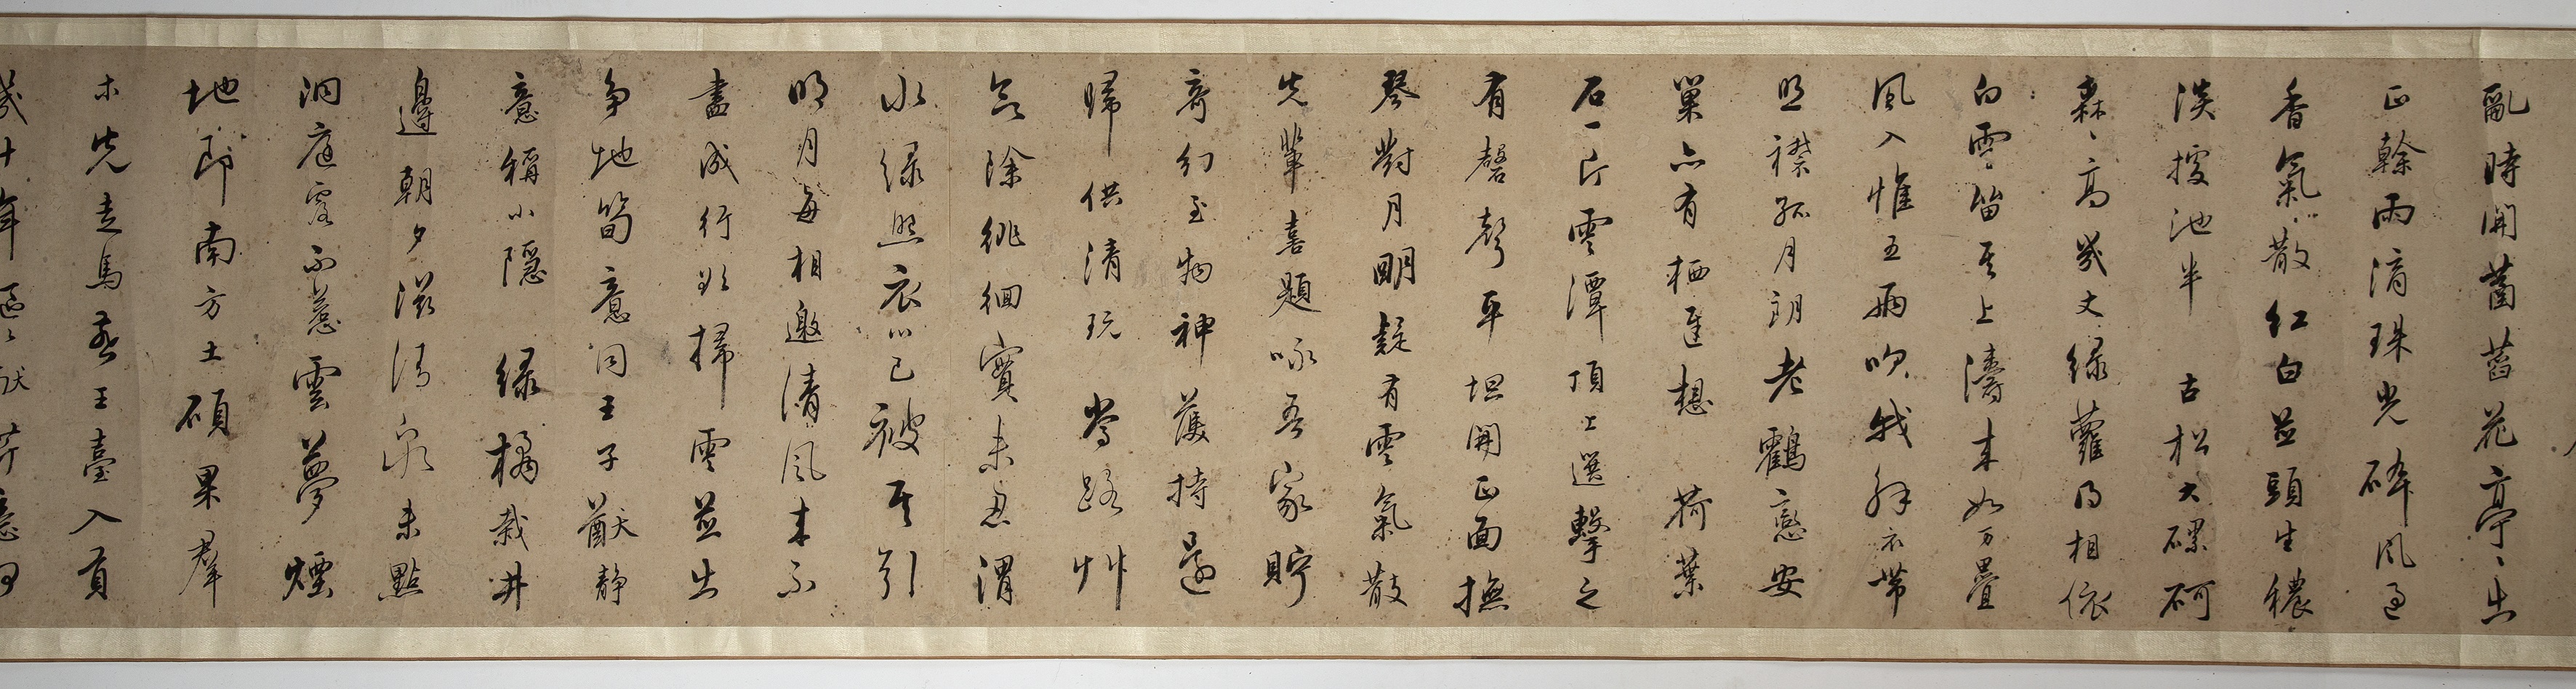 亂時開菡萏花亭亭出
正幹雨淯珠光碎風過
香氣散紅白並頭生穠
淡擅池半 古松大磥砢
森森高幾丈綠蘿乃相依
白雪留其上濤來如万疊
風入惟五兩吹我解衣帶
思襟孤月朗老鶴戀安
巢亦有栖遲想 荷葉
石一片雲潭頂上選擊之
有磬聲平坦開正面撫
琴對月明疑有雲氣散
先輩喜題咏吾家貯
奇幻至物神護持還
歸供清玩 當路艸
無除徘徊實未忍謂
水綠照衣以已被其引
明月每相邀清風來不
盡成行欲掃雲並出
爭地筍意同王子猷靜
意稱小隱 綠橘栽井
邊朝夕滋清泉未點
洞庭霜不惹雲夢煙
地即南方土碩果羣
木先走馬燕王臺入貢
幾十年